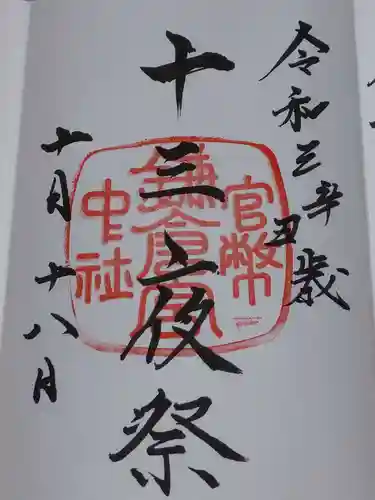 令和三辛丑歳
十三夜祭
十月十八日
官幣
鎌倉宮
中社